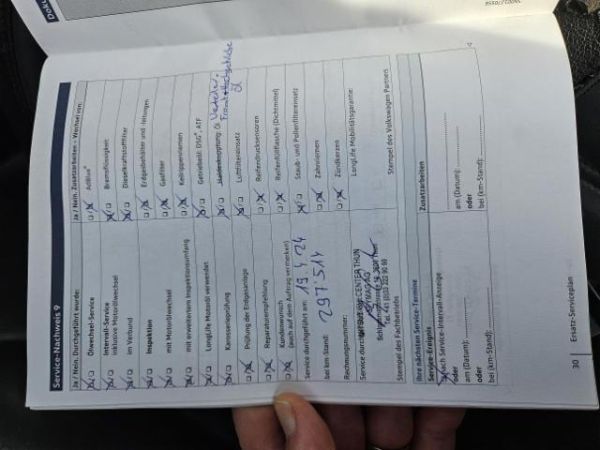 Service-Nachweis 9
Ja / Nein. Durchgeführt wurde:
Ölwechsel-Service
Intervall-Service
inklusive Motorölwechsel
im Verbund
Inspektion
mit Motorölwechsel
mit erweitertem Inspektionsumfang
LongLife Motoröl verwendet
Karosserieprüfung
Prüfung der Erdgasanlage
Reparaturempfehlung
Kundenwunsch
(auch auf dem Auftrag vermerken)
Service durchgeführt am: 19.4.24
bei km-Stand: 297'514
Rechnungsnummer:
Service durch
CENTER THUN
AMAG AG
Stempel des Fachbetriebs
Ja / Nein. Zusatzarbeiten – Wechsel von:
AdBlue®
Bremsflüssigkeit
Dieselkraftstofffilter
Erdgasbehälter und -leitungen
Gasfilter
Keilrippenriemen
Getriebeöl: DSG®, ATF
Öl
Luftfiltereinsatz
Reifendrucksensoren
Reifenfüllflasche (Dichtmittel)
Staub- und Pollenfiltereinsatz
Zahnriemen
Zündkerzen
LongLife Mobilitätsgarantie:
Stempel des Volkswagen Partners
Ihre nächsten Service-Termine
Service-Ereignis
nach Service-Intervall-Anzeige
oder
am (Datum):
oder
bei (km-Stand):
Zusatzarbeiten
am (Datum):
oder
bei (km-Stand):
30 | Einsatz-Serviceplan